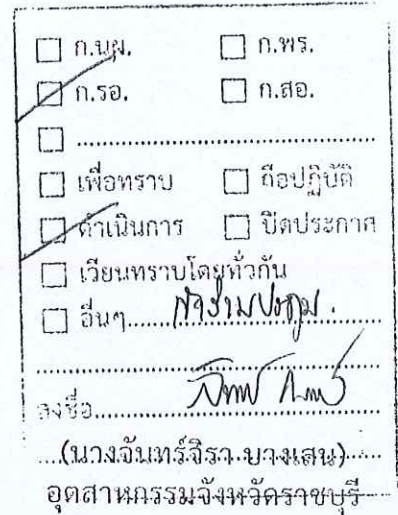 ☐ ก.นผ. ☐ ก.พร.
☐ ก.รอ. ☐ ก.สอ.
☐ ..............................
☐ เพื่อทราบ ☐ ถือปฏิบัติ
☐ ดำเนินการ ☐ ปิดประกาศ
☐ เวียนทราบโดยทั่วกัน
☐ อื่นๆ....................
ลงชื่อ....................
(นางจันทร์จิรา บางเสน)
อุตสาหกรรมจังหวัดราชบุรี